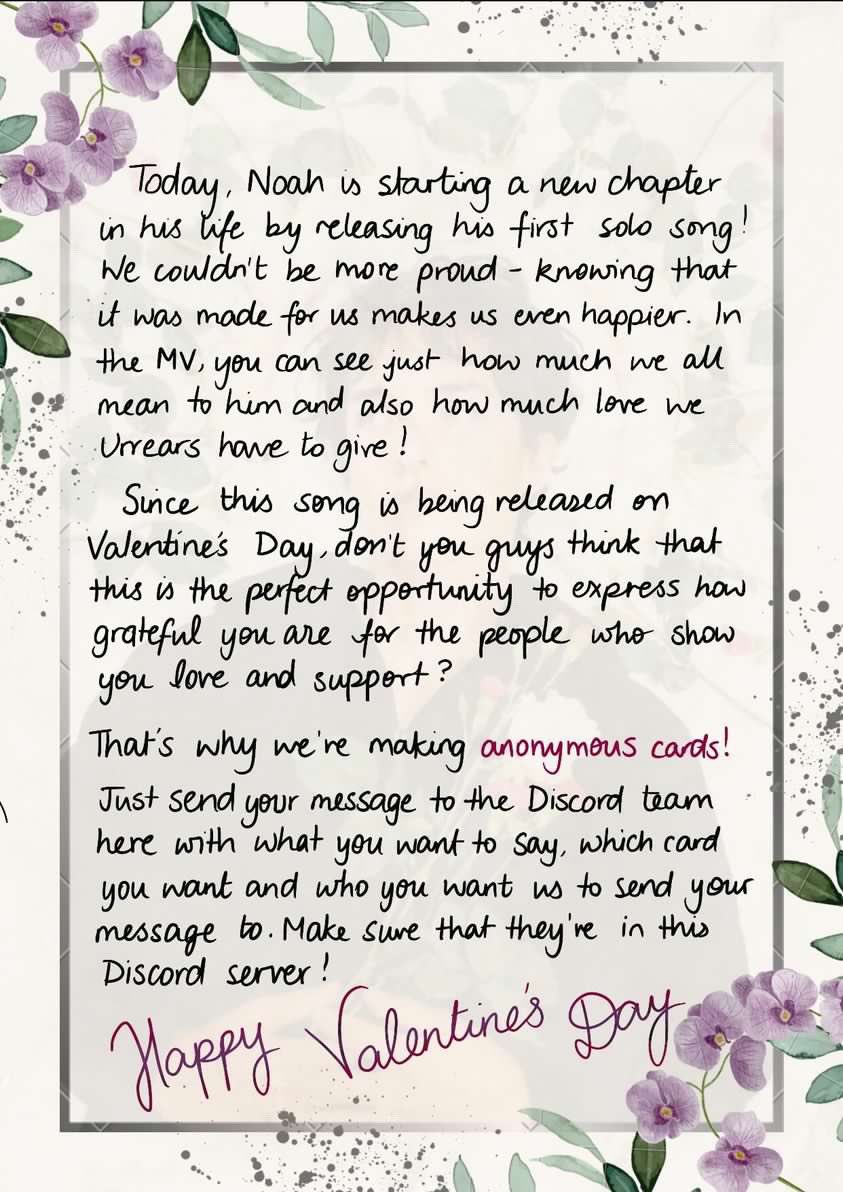 Today, Noah is starting a new chapter
in his life by releasing his first solo song!
We couldn't be more proud - knowing that
it was made for us makes us even happier. In
the MV, you can see just how much we all
mean to him and also how much love we
Urrears have to give!
Since this song is being released on
Valentine's Day, don't you guys think that
this is the perfect opportunity to express how
grateful you are for the people who show
you love and support?
That's why we're making anonymous cards!
Just send your message to the Discord team
here with what you want to say, which card
you want and who you want us to send your
message to. Make sure that they're in this
Discord server!
Happy Valentine's Day